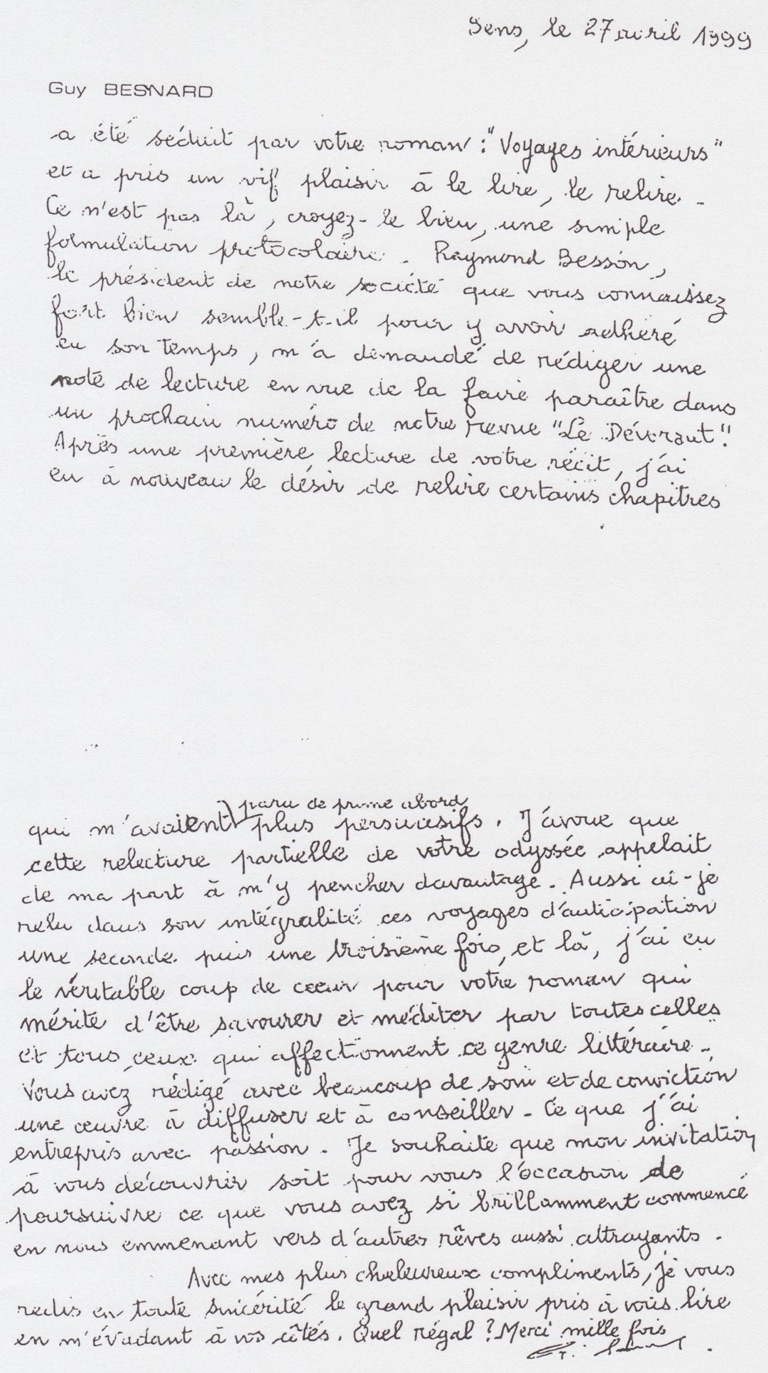 Sens, le 27 avril 1999
Guy BESNARD
a été séduit par votre roman : "Voyages intérieurs"
et a pris un vif plaisir à le lire, le relire.
Ce n'est pas là, croyez-le bien, une simple
formulation protocolaire. Raymond Besson,
le président de notre société que vous connaissez
fort bien semble-t-il pour y avoir adhéré
en son temps, m'a demandé de rédiger une
note de lecture en vue de la faire paraître dans
un prochain numéro de notre revue "Le Dévorant".
Après une première lecture de votre récit, j'ai
eu à nouveau le désir de relire certains chapitres
paru de prime abord
qui m'avaient plus persuasifs. J'avoue que
cette relecture partielle de votre odyssée appelait
de ma part à m'y pencher davantage. Aussi ai-je
relu dans son intégralité ces voyages d'anticipation
une seconde puis une troisième fois, et là, j'ai eu
le véritable coup de cœur pour votre roman qui
mérite d'être savourer et méditer par toutes celles
et tous ceux qui affectionnent ce genre littéraire.
Vous avez rédigé avec beaucoup de soin et de conviction
une œuvre à diffuser et à conseiller. Ce que j'ai
entrepris avec passion. Je souhaite que mon invitation
à vous découvrir soit pour vous l'occasion de
poursuivre ce que vous avez si brillamment commencé
en nous emmenant vers d'autres rêves aussi attrayants.
Avec mes plus chaleureux compliments, je vous
redis en toute sincérité le grand plaisir pris à vous lire
en m'évadant à vos côtés. Quel régal ! Merci mille fois